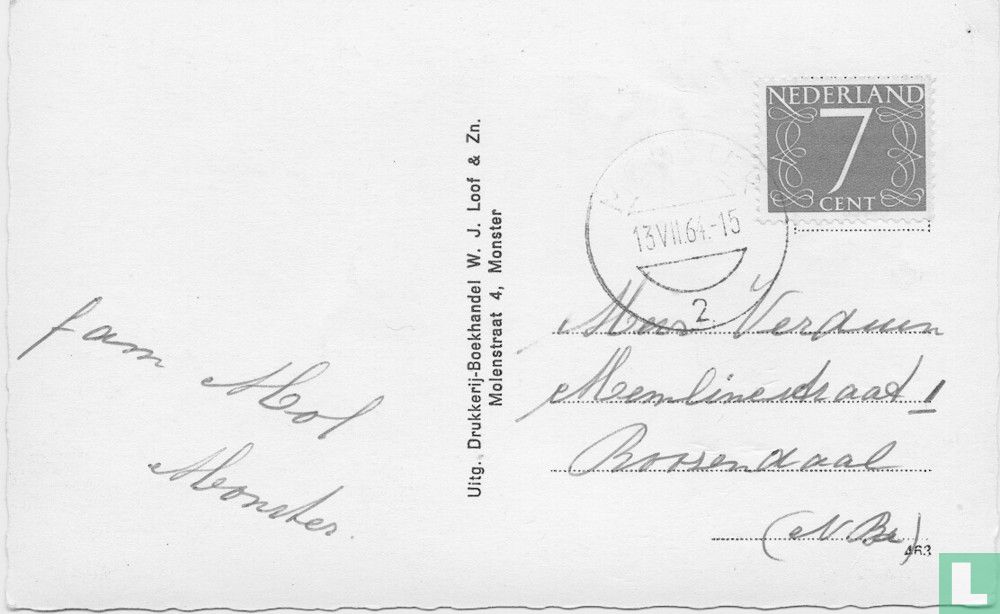 fam Mol
Monster.
Uitg. Drukkerij-Boekhandel W. J. Loof & Zn.
Molenstraat 4, Monster
NEDERLAND
7
CENT
13 VII.64.-15
2
Verduin
Memlinestraat 1
Roosendaal
(N Br)
463
L